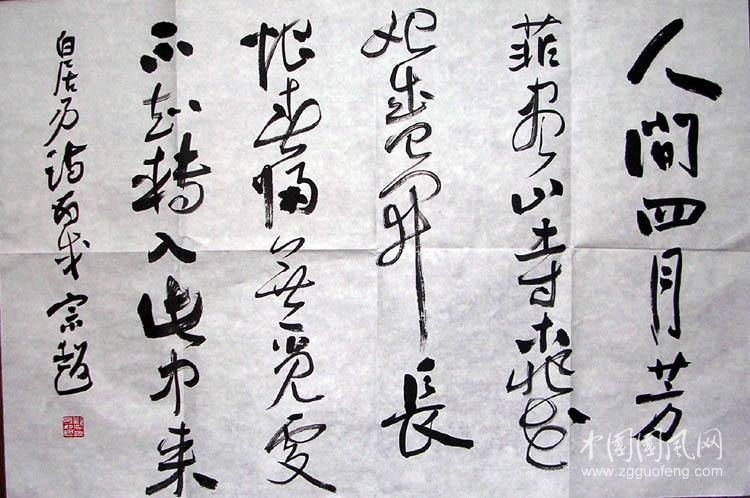 人間四月芳
菲盡山寺桃花
始盛開長
恨春歸無覓處
不知轉入此中来
白居易詩 宗超
中国国风网
www.zgguofeng.com